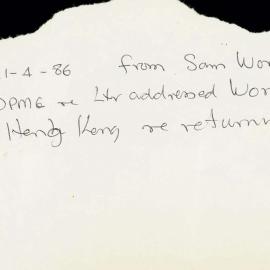 1-4-86 from Sam Wor
DPME re Ltr addressed Wor
Heng Keng re return